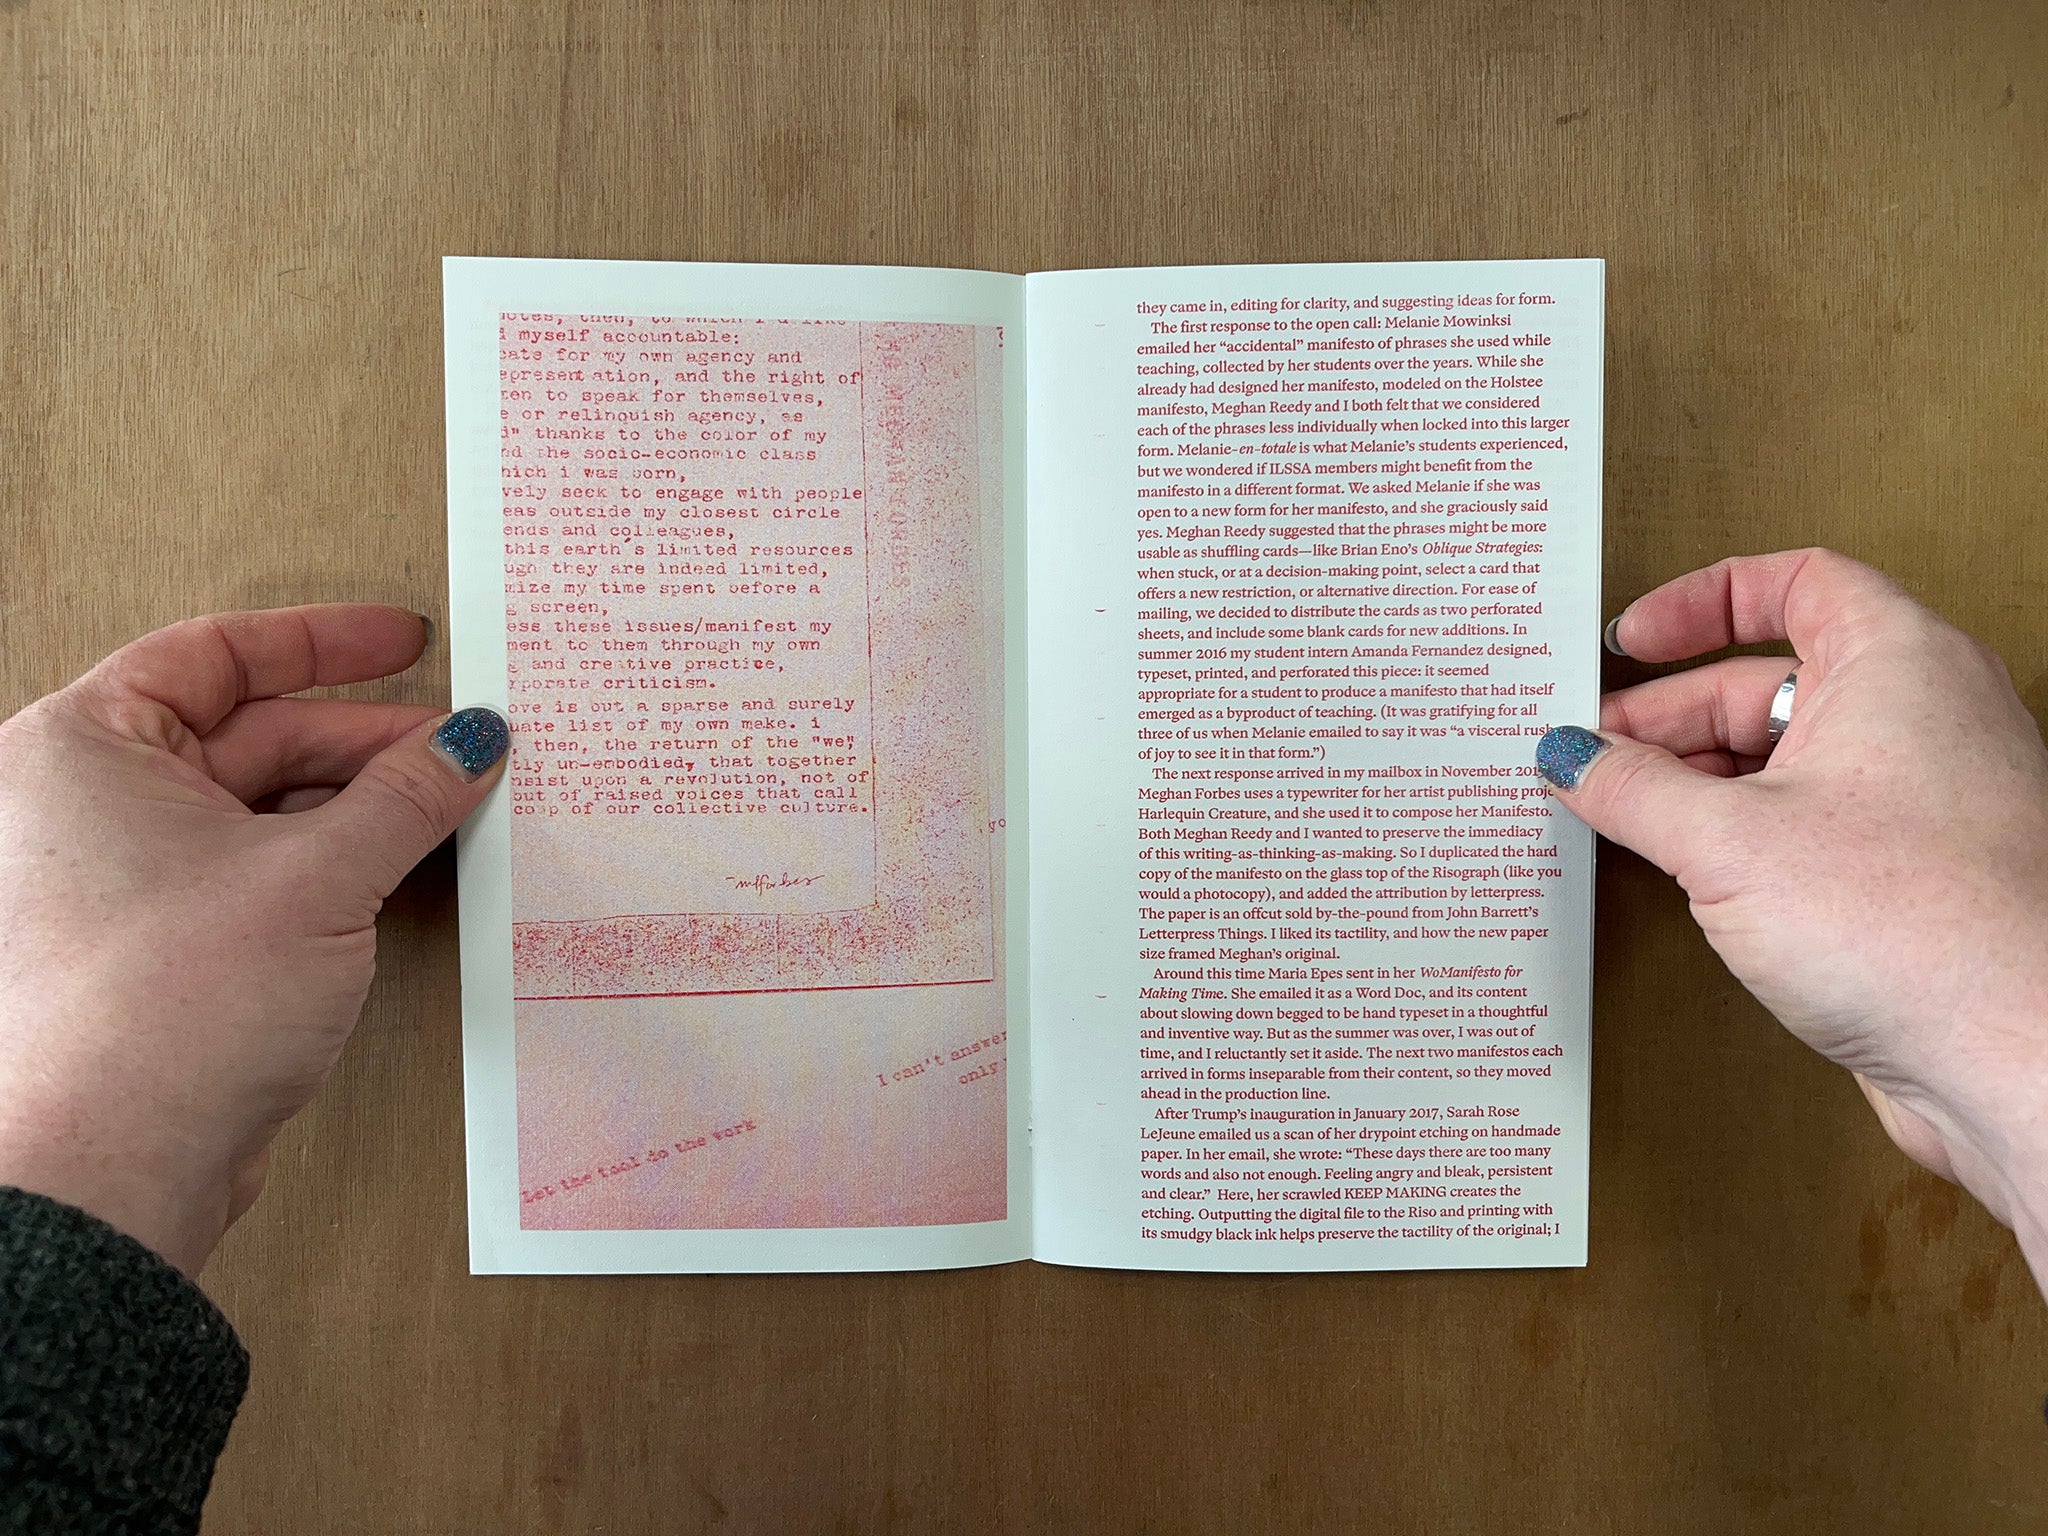 myself accountable:
for my own agency and
and the right of
to speak for themselves,
or relinquish agency, as
thanks to the color of my
the socio-economic class
which i was born,
seek to engage with people
outside my closest circle
and colleagues,
this earth's limited resources
they are indeed limited,
my time spent before a
screen,
these issues/manifest my
to them through my own
and creative practice,
criticism.
is but a sparse and surely
list of my own make. i
, then, the return of the "we",
un-embodied, that together
upon a revolution, not of
but of raised voices that call
of our collective culture.
-mlforbes
I can't answer
only
Let the tool do the work
they came in, editing for clarity, and suggesting ideas for form.
The first response to the open call: Melanie Mowinksi
emailed her “accidental” manifesto of phrases she used while
teaching, collected by her students over the years. While she
already had designed her manifesto, modeled on the Holstee
manifesto, Meghan Reedy and I both felt that we considered
each of the phrases less individually when locked into this larger
form. Melanie-en-totale is what Melanie’s students experienced,
but we wondered if ILSSA members might benefit from the
manifesto in a different format. We asked Melanie if she was
open to a new form for her manifesto, and she graciously said
yes. Meghan Reedy suggested that the phrases might be more
usable as shuffling cards—like Brian Eno’s Oblique Strategies:
when stuck, or at a decision-making point, select a card that
offers a new restriction, or alternative direction. For ease of
mailing, we decided to distribute the cards as two perforated
sheets, and include some blank cards for new additions. In
summer 2016 my student intern Amanda Fernandez designed,
typeset, printed, and perforated this piece: it seemed
appropriate for a student to produce a manifesto that had itself
emerged as a byproduct of teaching. (It was gratifying for all
three of us when Melanie emailed to say it was “a visceral rush
of joy to see it in that form.”)
The next response arrived in my mailbox in November
Meghan Forbes uses a typewriter for her artist publishing
Harlequin Creature, and she used it to compose her Manifesto.
Both Meghan Reedy and I wanted to preserve the immediacy
of this writing-as-thinking-as-making. So I duplicated the hard
copy of the manifesto on the glass top of the Risograph (like you
would a photocopy), and added the attribution by letterpress.
The paper is an offcut sold by-the-pound from John Barrett’s
Letterpress Things. I liked its tactility, and how the new paper
size framed Meghan’s original.
Around this time Maria Epes sent in her WoManifesto for
Making Time. She emailed it as a Word Doc, and its content
about slowing down begged to be hand typeset in a thoughtful
and inventive way. But as the summer was over, I was out of
time, and I reluctantly set it aside. The next two manifestos each
arrived in forms inseparable from their content, so they moved
ahead in the production line.
After Trump’s inauguration in January 2017, Sarah Rose
LeJeune emailed us a scan of her drypoint etching on handmade
paper. In her email, she wrote: “These days there are too many
words and also not enough. Feeling angry and bleak, persistent
and clear.” Here, her scrawled KEEP MAKING creates the
etching. Outputting the digital file to the Riso and printing with
its smudgy black ink helps preserve the tactility of the original; I